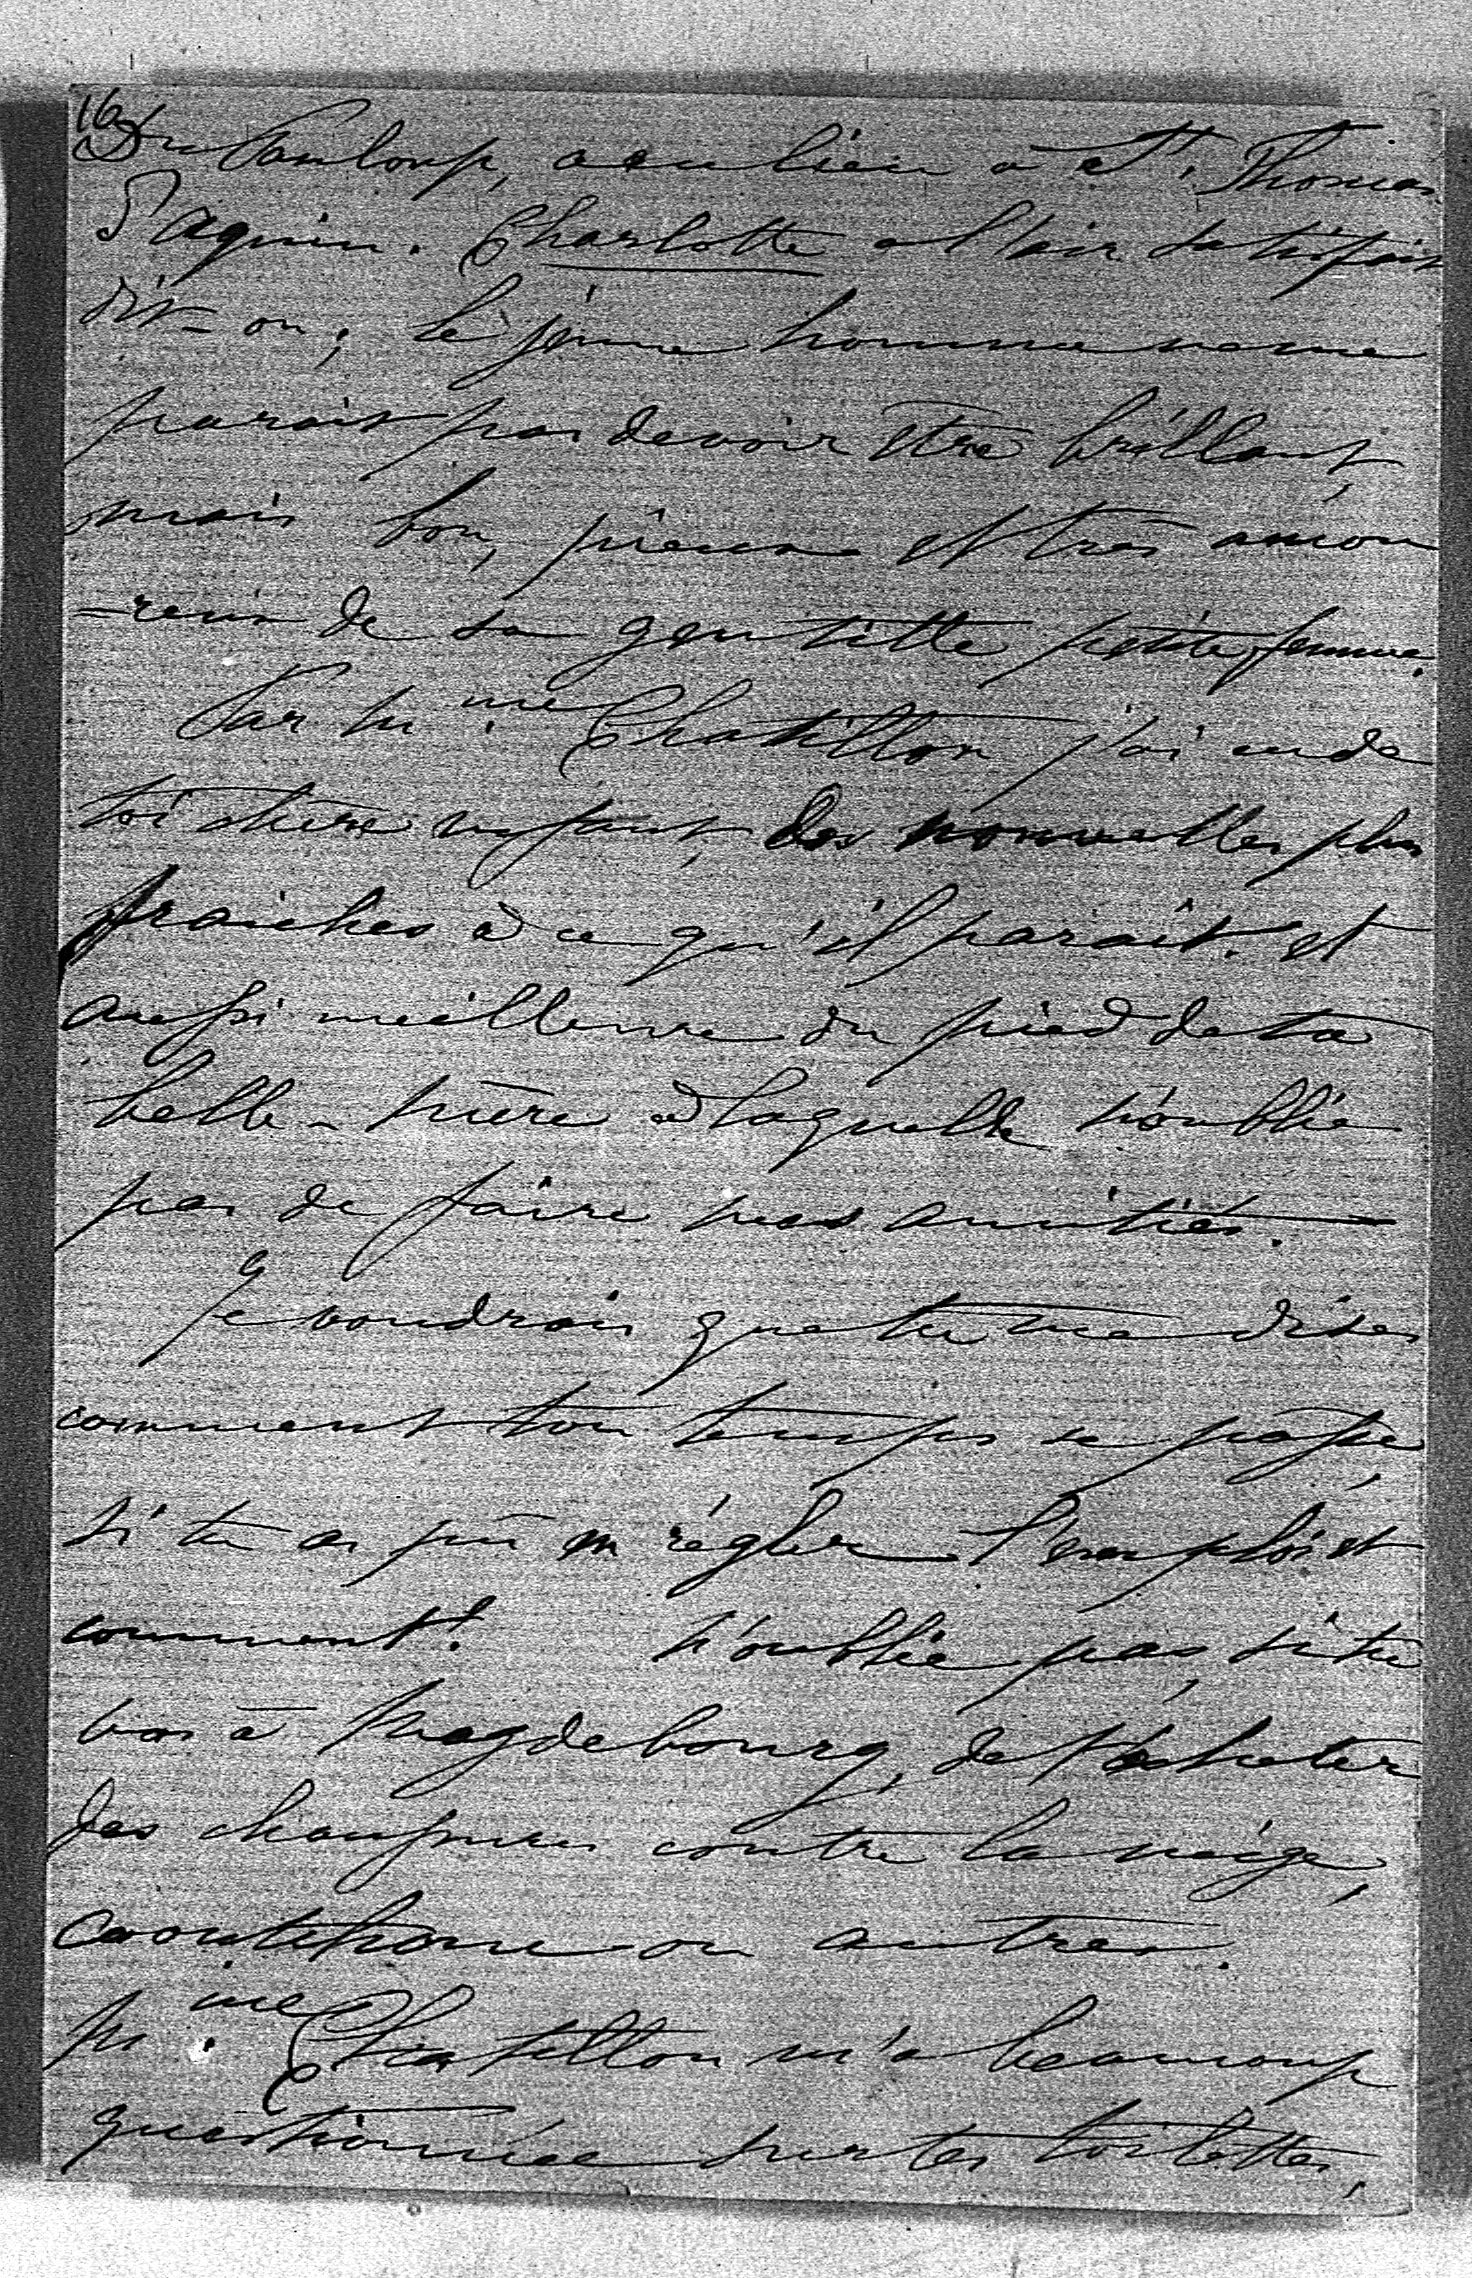 16
Dupanloup, a eu lieu à St. Thomas
d'aquin. Charlotte a l'air satisfait
dit-on; le jeune homme ne me
parait pas devoir être brillant,
mais bon, pieux et très amou
-reux de sa gentille petite femme.
Par Mme Chatillon j'ai eu de
toi chère enfant, des nouvelles plus
fraiches à ce qu'il parait. et
aussi meilleure du pied de ta
belle-mère à laquelle n'oublie
pas de faire mes amitiés.
Je voudrais que tu me dises
comment ton temps se passe,
si tu as pû en régler l'emploi et
comment? N'oublie pas, si tu
vas à Magdebourg, de t'acheter
des chaussures contre la neige,
caoutchouc ou autres.
Mme Chatillon m'a beaucoup
questionnée sur tes toilettes,